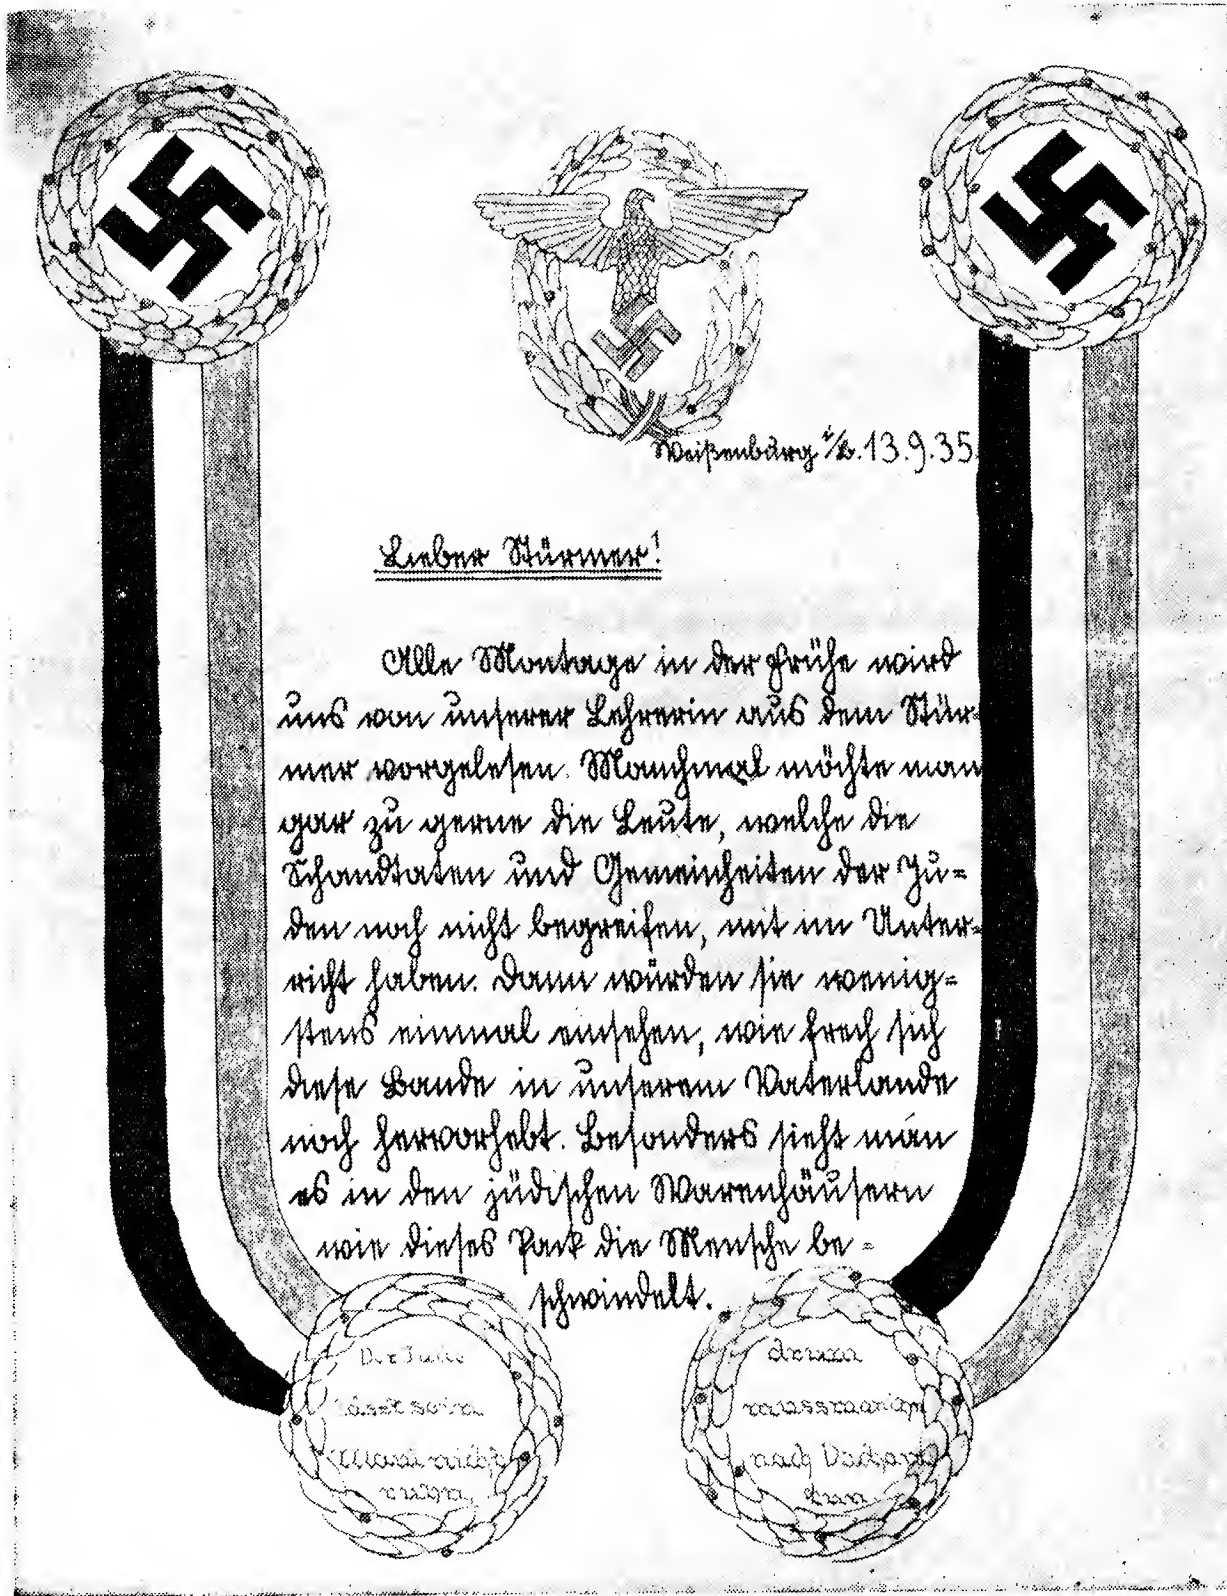 Weißenburg i/B. 13.9.35.
Lieber Stürmer!
Alle Montage in der Frühe wird
uns von unserer Lehrerin aus dem Stür-
mer vorgelesen. Manchmal möchte man
gar zu gerne die Leute, welche die
Schandtaten und Gemeinheiten der Ju=
den noch nicht begreifen, mit im Unter-
richt haben. Dann würden sie wenig=
stens einmal einsehen, wie frech sich
diese Bande in unserem Vaterlande
noch hervorhebt. Besonders sieht man
es in den jüdischen Warenhäusern
wie dieses Pack die Mensche be=
schwindelt.
Der Jude
lässt sein
nicht
ruhn,
drum
muss man ihn
nach Dachau
tun